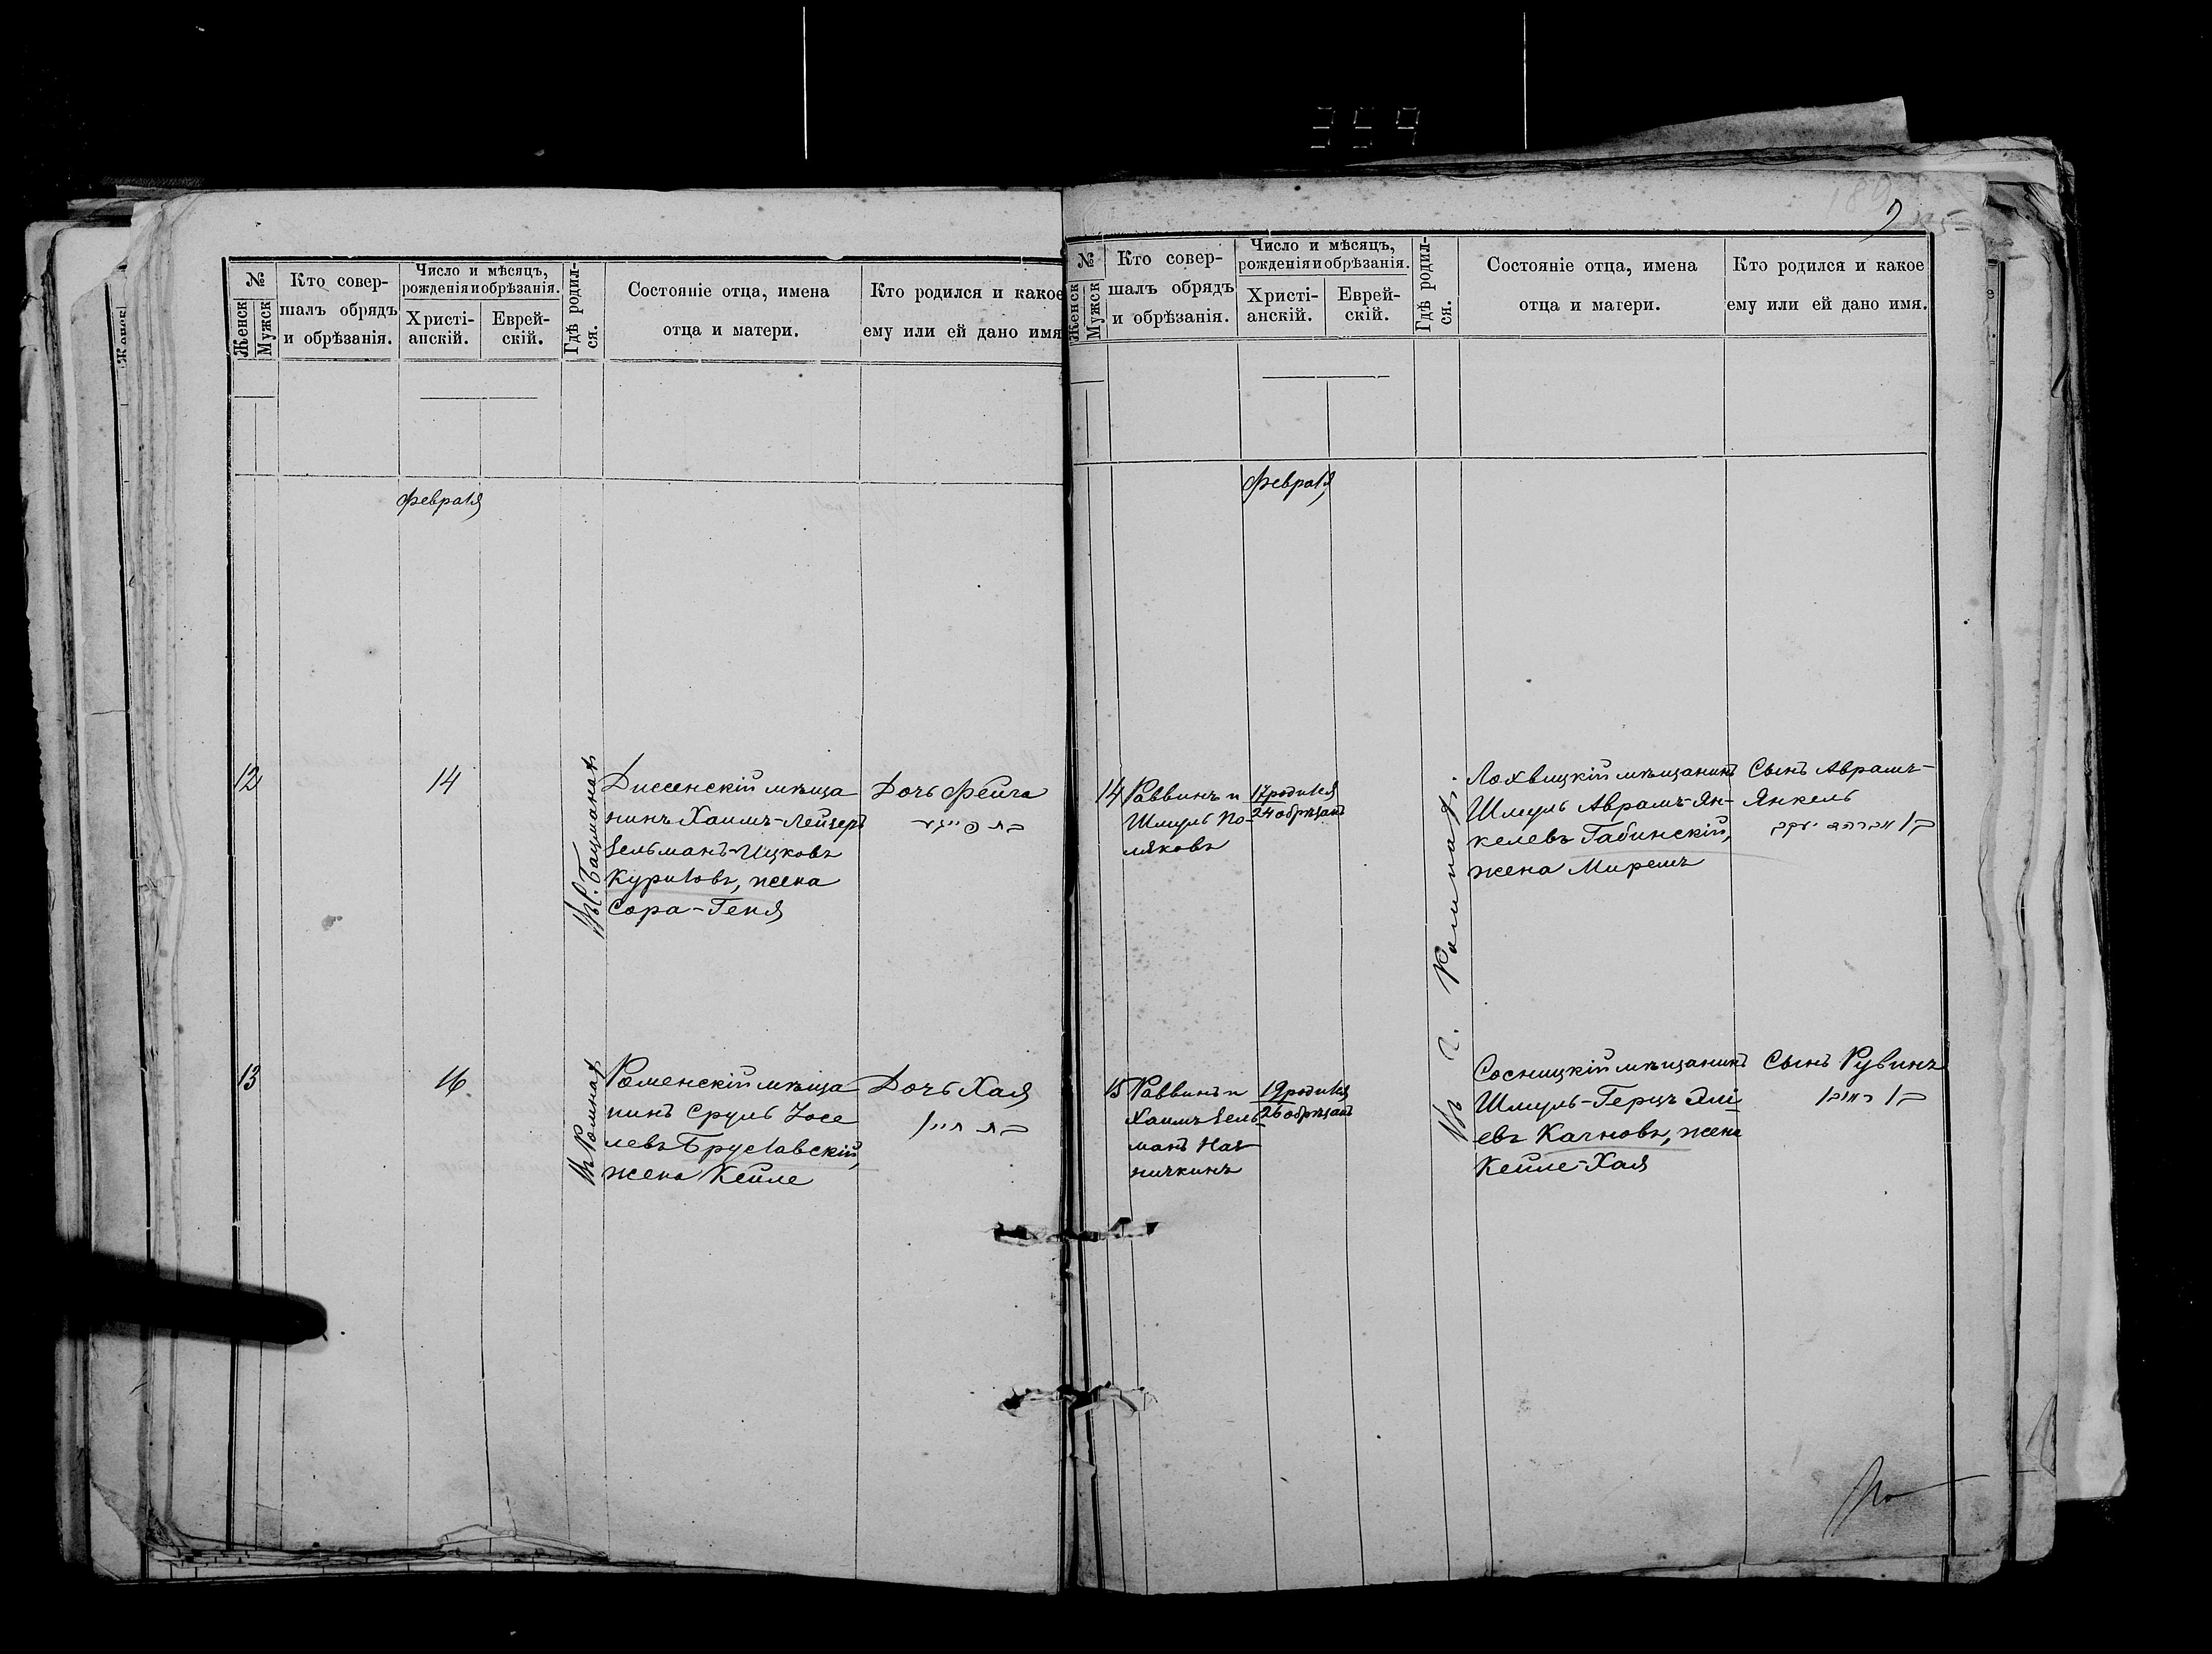 359
№
Женск
Мужск
Кто совер-
шалъ обрядъ
и обрѣзанія.
Число и мѣсяцъ,
рожденія и обрѣзанія.
Христі-
анскій.
Еврей-
скій.
Гдѣ родил-
ся.
Состояніе отца, имена
отца и матери.
Кто родился и какое
ему или ей дано имя
Февраля
12
14
Дисенскій мѣща
нинъ Хаимъ-Лейзеръ
Зельманъ-Ицковъ
Куриловъ, жена
Сора-Геня
Дочь Фейга
13
16
Въ Ромнахъ
Роменскій мѣща
нинъ Сруль Іосе
левъ Бруславскій,
жена Кейле
Дочь Хая
№
Женск
Мужск
Кто совер-
шалъ обрядъ
и обрѣзанія.
Число и мѣсяцъ,
рожденія и обрѣзанія.
Христі-
анскій.
Еврей-
скій.
Гдѣ родил-
ся.
Состояніе отца, имена
отца и матери.
Кто родился и какое
ему или ей дано имя.
Февраля
14
Раввинъ и
Шмуль По-
ляковъ
17 родился
24 обрѣзанъ
Въ г. Ромнахъ
Лохвицкій мѣщанинъ
Шмуль Аврамъ-Ян-
келевъ Габинскій,
жена Миремъ
Сынъ Аврамъ-
Янкель
15
Раввинъ и
Хаимъ Зель-
манъ
19 родился
26 обрѣзанъ
Сосницкій мѣщанинъ
Шмуль-Герцъ Элі-
евъ Качновъ, жена
Кейле-Хая
Сынъ Рувинъ